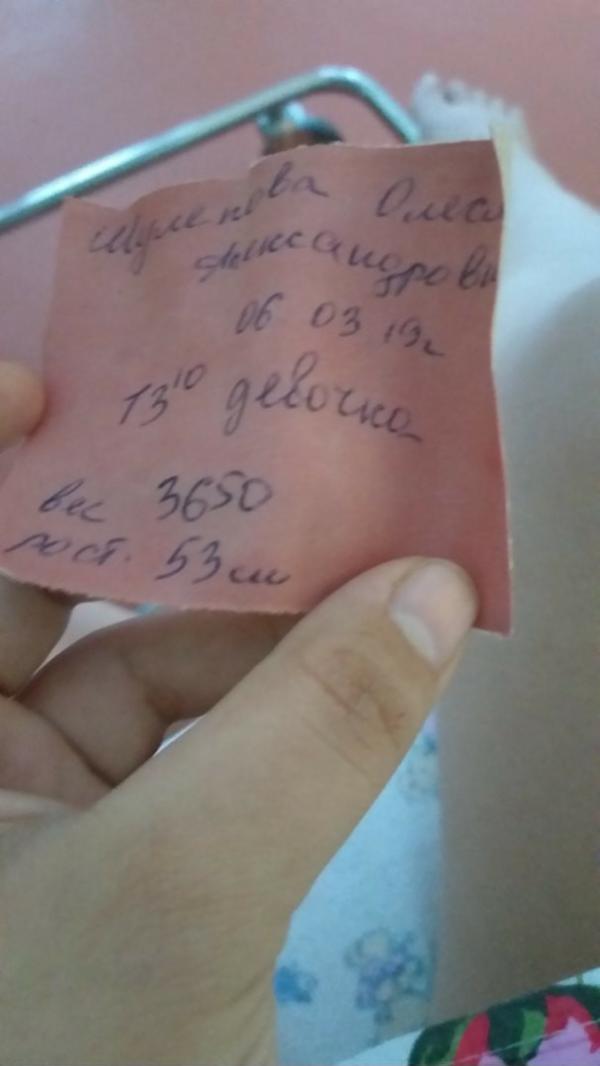 Шулепова Олеся
Александровн
06 03 19г
13 10 девочка
вес 3650
рост. 53 см